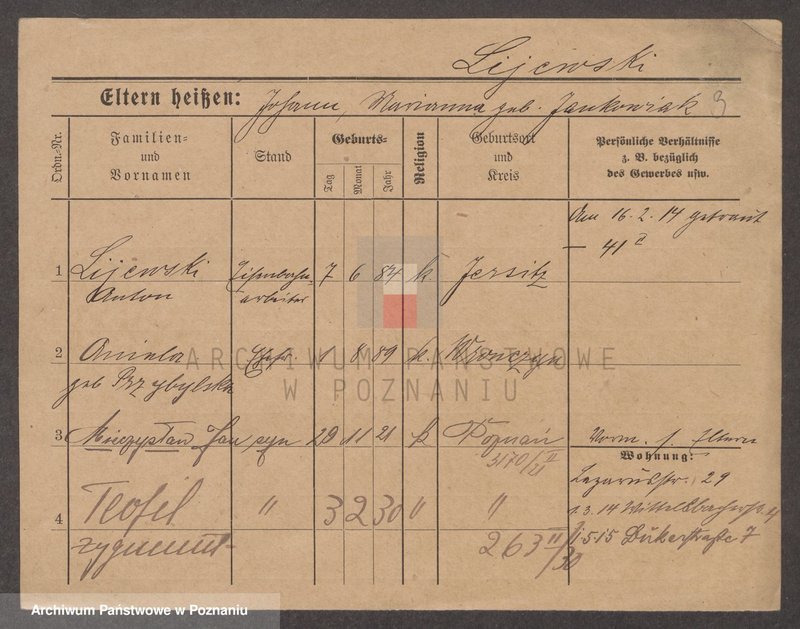 Lijewski
Eltern heißen: Johann, Marianna geb. Jankowiak 3
Ordn.-Nr.
Familien- und Vornamen
Stand
Geburts-
Tag
Monat
Jahr
Religion
Geburtsort und Kreis
Persönliche Verhältnisse
z. B. bezüglich
des Gewerbes usw.
Am 16.2.14 getraut
— 41 II
1 Lijewski Eisenbahn- 7 6 84 k. Jersitz
Anton arbeiter
2 Aniela Ehefr. 1 8 89 k. Wronczyn
geb Przybylska
3 Mieczysław Jan syn 29 11 21 k Poznań
3170/II 21
Vorm. s. Eltern
Wohnung:
Lazarusstr. 29
1.3.14 Wittelsbacherstr.
1.5.15 Dükerstraße 7
4 Teofil " 3 2 30 " "
Zygmunt
263 II/30
ARCHIWUM PAŃSTWOWE
W POZNANIU
Archiwum Państwowe w Poznaniu